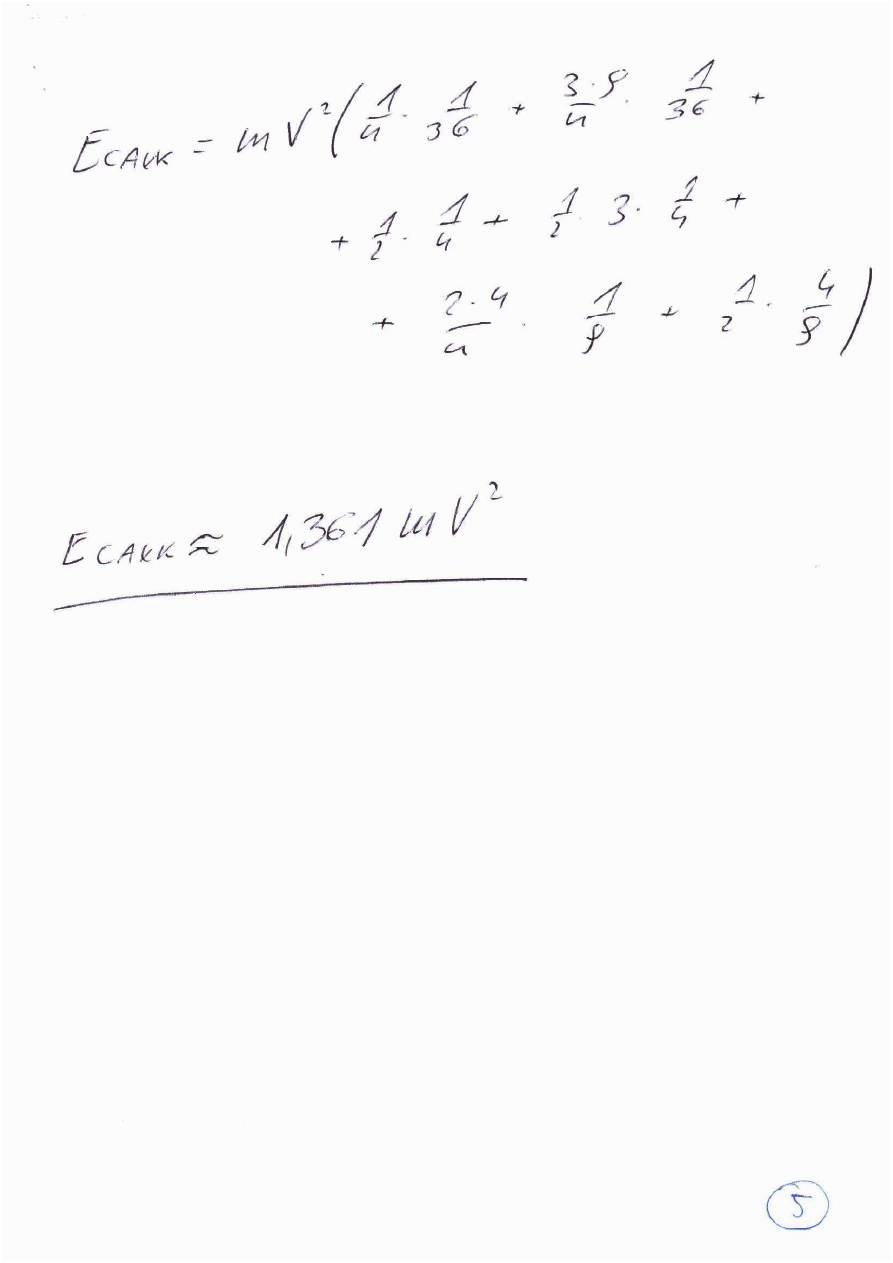 E_CAKK = mV²(1/4 · 1/36 + 3·9/4 · 1/36 +
+ 1/2 · 1/4 + 1/2 · 3 · 1/4 +
+ 2·4/4 · 1/9 + 1/2 · 4/9)
E_CAKK ≈ 1,361 mV²
5